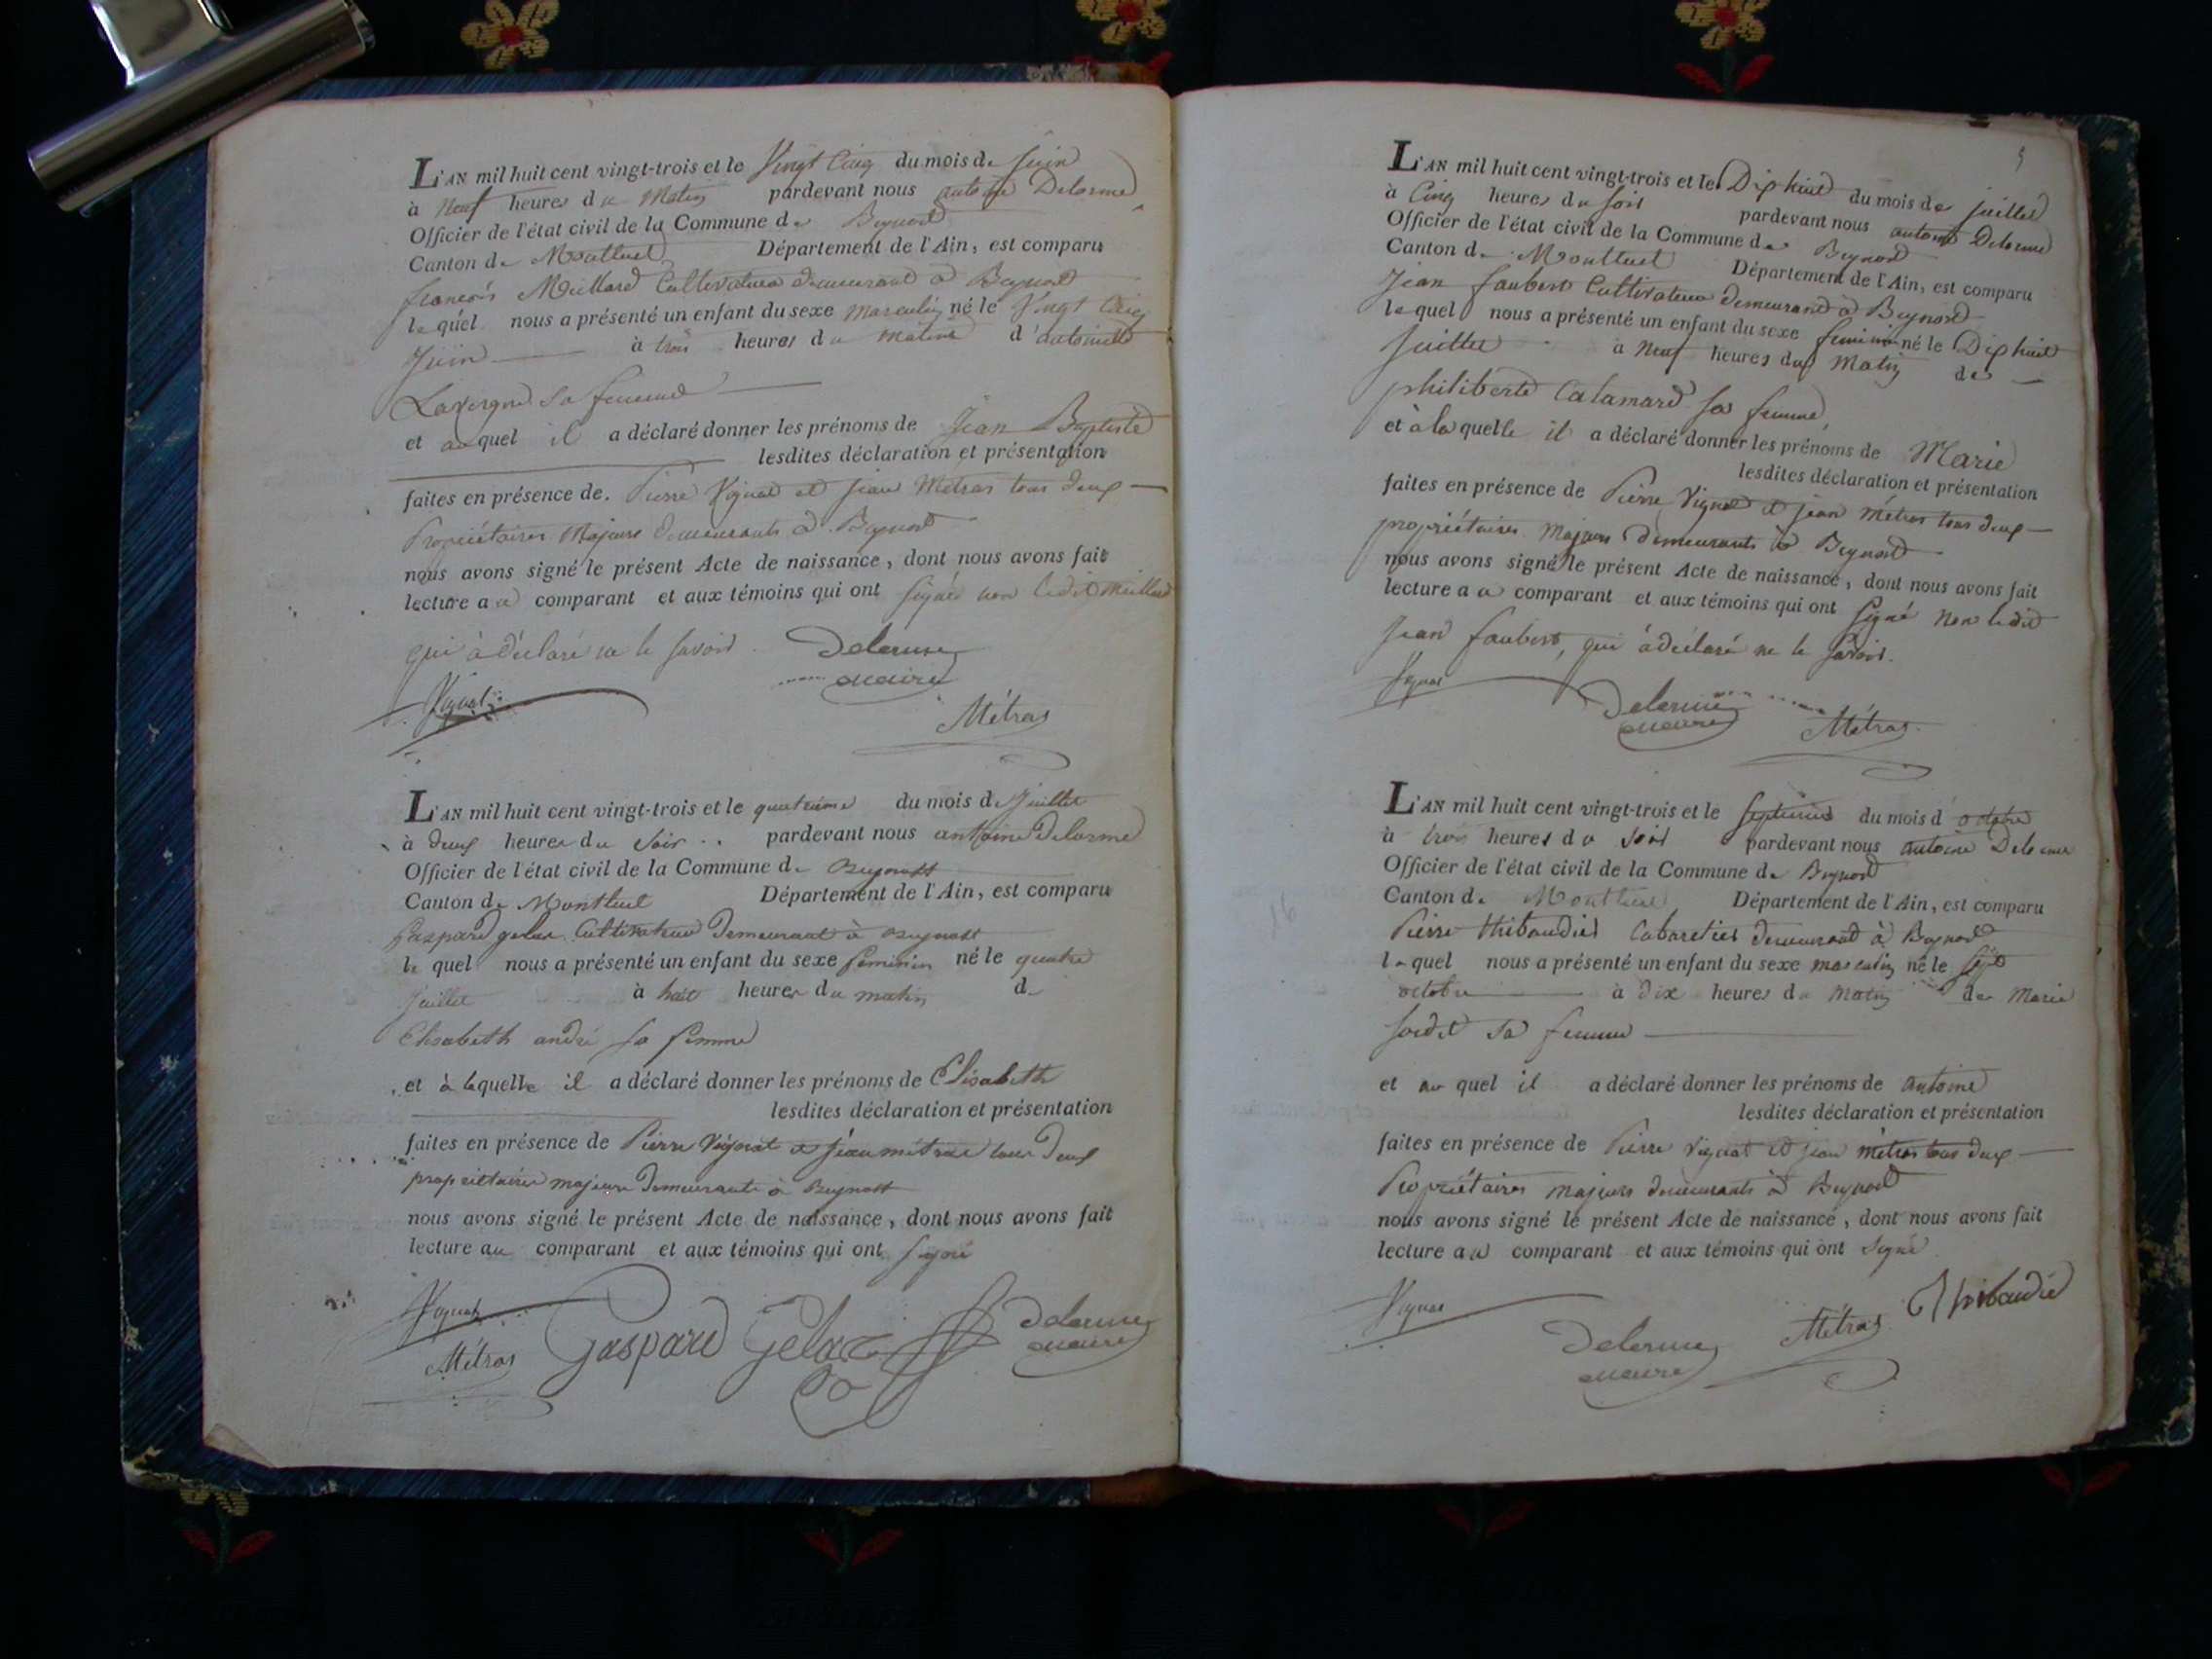 L'AN mil huit cent vingt-trois et le Vingt Cinq du mois de Juin
à Neuf heures du Matin pardevant nous antoine Delorme
Officier de l'état civil de la Commune de Beynost
Canton de Montluel Département de l'Ain, est comparu
françois Meillard Cultivateur demeurant à Beynost
lequel nous a présenté un enfant du sexe masculin né le Vingt Cinq
Juin à trois heures du matin d'antoinette
Lavergne sa femme
et auquel il a déclaré donner les prénoms de Jean Baptiste
lesdites déclaration et présentation
faites en présence de Pierre Vignat et Jean Métras tous deux
Propriétaires Majeurs demeurants à Beynost
nous avons signé le présent Acte de naissance, dont nous avons fait
lecture au comparant et aux témoins qui ont signés non ledit Meillard
qui à déclaré ne le savoir Delorme
maire
Vignat
Métras
L'AN mil huit cent vingt-trois et le quatrième du mois de Juillet
à deux heures du soir pardevant nous antoine Delorme
Officier de l'état civil de la Commune de Beynost
Canton de Montluel Département de l'Ain, est comparu
Gaspard gelas Cultivateur demeurant à Beynost
lequel nous a présenté un enfant du sexe feminin né le quatre
Juillet à huit heures du matin de
Elisabeth andré sa femme
et à laquelle il a déclaré donner les prénoms de Elisabeth
lesdites déclaration et présentation
faites en présence de Pierre Vignat et Jean métras tous deux
propriétaires majeurs demeurants à Beynost
nous avons signé le présent Acte de naissance, dont nous avons fait
lecture au comparant et aux témoins qui ont signé
Vignat Delorme
Métras Gaspard Gelas maire
5
L'AN mil huit cent vingt-trois et le Dix huit du mois de juillet
à Cinq heures du soir pardevant nous antoine Delorme
Officier de l'état civil de la Commune de Beynost
Canton de Montluel Département de l'Ain, est comparu
Jean faubert Cultivateur demeurant à Beynost
lequel nous a présenté un enfant du sexe feminin né le Dix huit
Juillet à Neuf heures du Matin de
philiberte Calamard sa femme
et à laquelle il a déclaré donner les prénoms de Marie
lesdites déclaration et présentation
faites en présence de Pierre Vignat et jean métras tous deux
propriétaires Majeurs demeurants à Beynost
nous avons signé le présent Acte de naissance, dont nous avons fait
lecture au comparant et aux témoins qui ont signé Non ledit
Jean faubert, qui à déclaré ne le savoir.
Vignat
Delorme
maire Métras
L'AN mil huit cent vingt-trois et le septième du mois d'octobre
à trois heures du soir pardevant nous antoine Delorme
Officier de l'état civil de la Commune de Beynost
Canton de Montluel Département de l'Ain, est comparu
Pierre thibaudier Cabaretier demeurant à Beynost
lequel nous a présenté un enfant du sexe masculin né le sept
octobre à dix heures du matin de Marie
sordet sa femme
et auquel il a déclaré donner les prénoms de antoine
lesdites déclaration et présentation
faites en présence de Pierre Vignat et jean métras tous deux
Propriétaires majeurs demeurants à Beynost
nous avons signé le présent Acte de naissance, dont nous avons fait
lecture au comparant et aux témoins qui ont signé
Vignat Thibaudié
Delorme Métras
maire